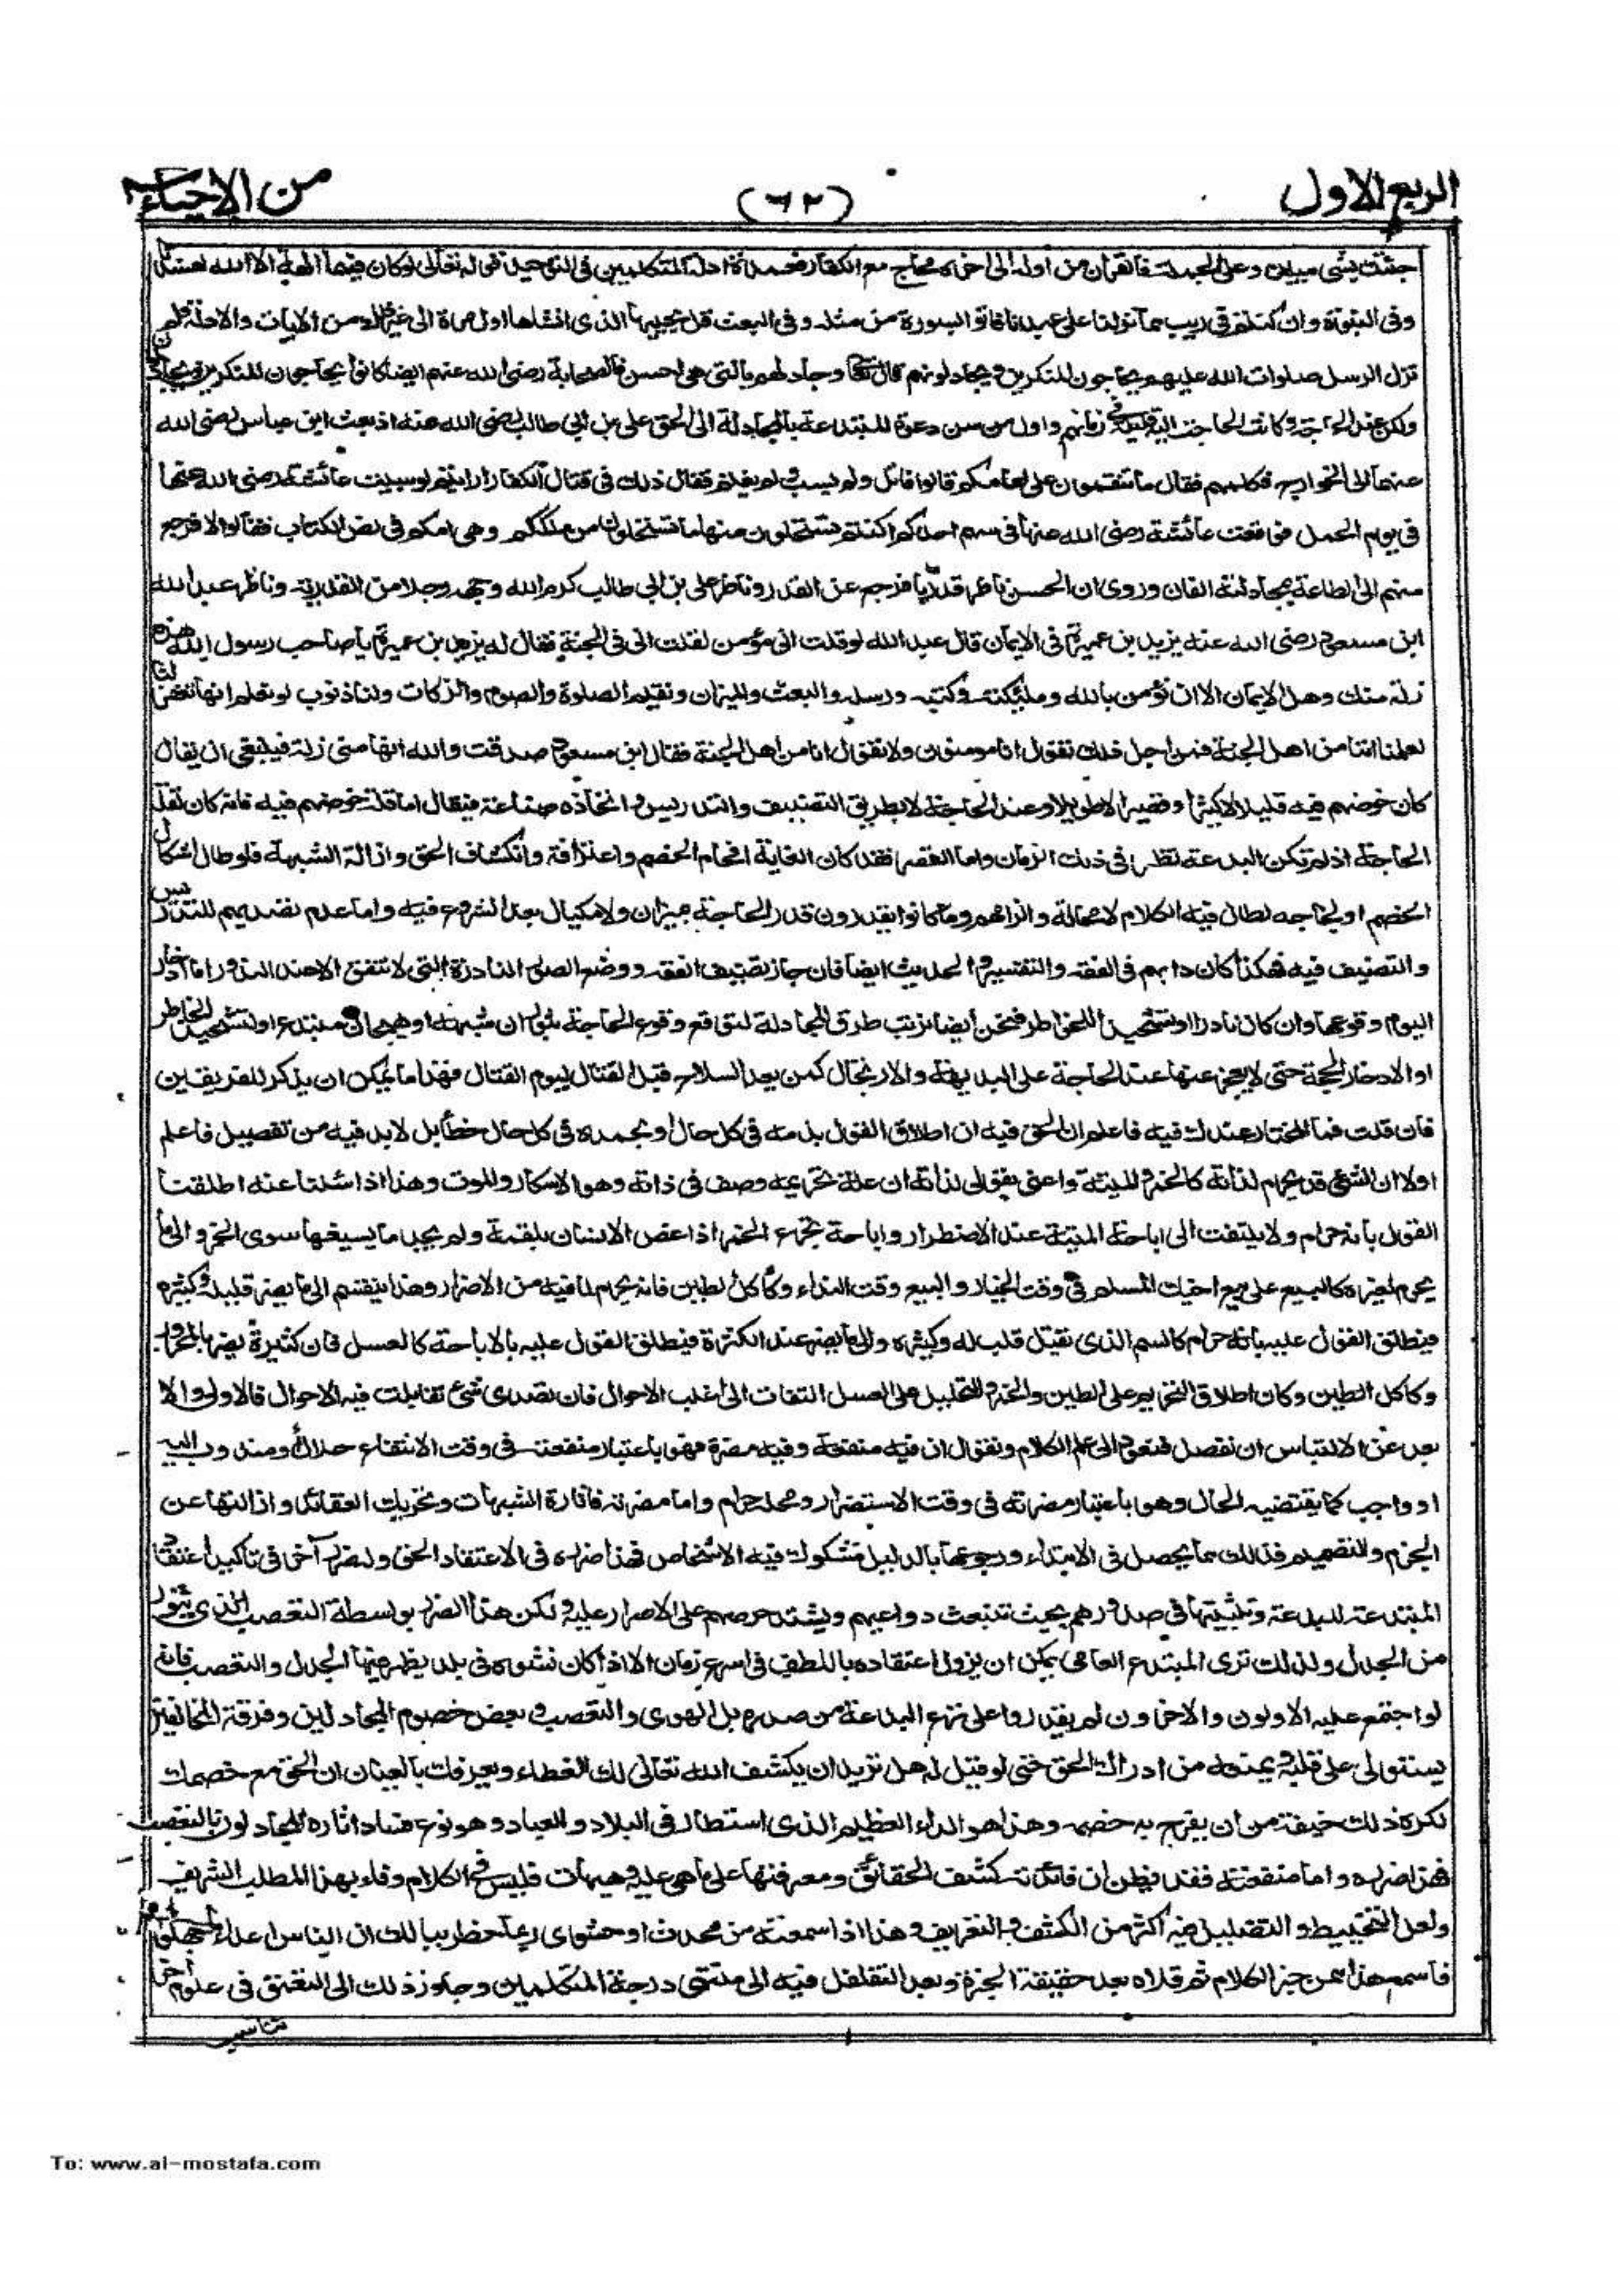 الربع الاول (٦٢) من الاحياء
جئتك بشئ مبين وعلى الجملة فالقران من اوله الى اخره محاج مع الكفار فعمدة ادلة المتكلمين فى التوحيد قوله تعالى لوكان فيهما الهة الا الله لفسدتا
وفى النبوة وان كنتم فى ريب مما نزلنا على عبدنا فاتوا بسورة من مثله وفى البعث قل يحييها الذى انشاها اول مرة الى غير ذلك من الايات والادلة ولم
تزل الرسل صلوات الله عليهم يحاجون المنكرين ويجادلونهم قال تعالى وجادلهم بالتى هى احسن فالصحابة رضى الله عنهم ايضا كانوا يحاجون المنكرين ويجادلون
ولكن عند الحاجة وكانت الحاجة اليه قليلة فى زمانهم واول من سن دعوة المبتدعة بالمجادلة الى الحق على بن ابى طالب رضى الله عنه اذ بعث ابن عباس رضى الله
عنهما الى الخوارج فكلمهم فقال ما تنقمون على امامكم قالوا قاتل ولم يسب ولم يغنم فقال ذلك فى قتال الكفار ارايتم لو سبيت عائشة رضى الله عنها
فى يوم الجمل فوقعت عائشة رضى الله عنها فى سهم احدكم اكنتم تستحلون منها ما تستحلون من ملككم وهى امكم فى نص الكتاب فقالوا لا فرجع
منهم الى الطاعة بمجادلته الفان وروى ان الحسن ناظر قدريا فرجع عن القدر وناظر على بن ابى طالب كرم الله وجهه رجلا من القدرية وناظر عبد الله
ابن مسعود رضى الله عنه يزيد بن عميرة فى الايمان قال عبد الله لو قلت انى مؤمن لقلت انى فى الجنة فقال له يزيد بن عميرة يا صاحب رسول الله هذه
زلة منك وهل الايمان الا ان نؤمن بالله وملئكته وكتبه ورسله والبعث والميزان ونقيم الصلوة والصوم والزكات ولنا ذنوب لو نعلم انها تغفر لنا
لعلمنا اننا من اهل الجنة فمن اجل ذلك نقول انا مومنون ولا نقول انا من اهل الجنة فقال ابن مسعود صدقت والله انها منى زلة فينبغى ان يقال
كان خوضهم فيه قليلا لا كثيرا وقصيرا لا طويلا وعند الحاجة لا بطريق التصنيف والتدريس واتخاذه صناعة فيقال اما قلة خوضهم فيه فانه كان لقلة
الحاجة اذ لم تكن البدعة تظهر فى ذلك الزمان واما القصر فقد كان الغاية افحام الخصم واعترافه وانكشاف الحق وازالة الشبهة فلو طال اشكال
الخصم او لجاجه لطال فيه الكلام لا محالة والزامهم وما كانوا يقدرون قدر الحاجة بميزان ولا مكيال بعد الشروع فيه واما عدم تصديهم للتدريس
والتصنيف فيه فهكذا كان دابهم فى الفقه والتفسير والحديث ايضا فان جاز تصنيف الفقه ووضع الصور النادرة التى لا تتفق الا عند الندور اما ادخارا
اليوم وقوعها وان كان نادرا او تشحيذا للخواطر فنحن ايضا نرتب طرق المجادلة لتوقع وقوع الحاجة بثوران شبهة او هيجان مبتدع او لتشحيذ الخاطر
او الادخار الحجة حتى لا يعجز عنها عند الحاجة على البديهة والارتجال كمن يعد السلاح قبل القتال ليوم القتال فهذا ما يمكن ان يذكر للفريقين
فان قلت فما المختار عندك فيه فاعلم ان الحق فيه ان اطلاق القول بذمه فى كل حال او بحمده فى كل حال خطأ بل لا بد فيه من تفصيل فاعلم
اولا ان الشئ قد يحرم لذاته كالخمر والميتة واعنى بقولى لذاته ان علة تحريمه وصف فى ذاته وهو الاسكار والموت وهذا اذا سئلنا عنه اطلقنا
القول بانه حرام ولا يلتفت الى اباحة الميتة عند الاضطرار واباحة تجرع الخمر اذا غص الانسان بلقمة ولم يجد ما يسيغها سوى الخمر والى ما
يحرم لغيره كالبيع على بيع اخيك المسلم فى وقت الخيار والبيع وقت النداء وكأكل الطين فانه يحرم لما فيه من الاضرار وهذا ينقسم الى ما يضر قليله وكثيره
فينطلق القول عليه بانه حرام كالسم الذى يقتل قليله وكثيره والى ما يضر عند الكثرة فينطلق القول عليه بالاباحة كالعسل فان كثيرة يضر بالمحرور
وكاكل الطين وكان اطلاق التحريم على الطين والخمر والتحليل على العسل التفات الى اغلب الاحوال فان تصدى شئ تقابلت فيه الاحوال فالاولى والا
بعد عن الالتباس ان تفصل فنعود الى علم الكلام ونقول ان فيه منفعة وفيه مضرة فهو باعتبار منفعته فى وقت الانتفاع حلال ومندوب اليه
او واجب كما يقتضيه الحال وهو باعتبار مضرته فى وقت الاستضرار ومحله حرام واما مضرته فاثارة الشبهات وتحريك العقائد وازالتها عن
الجزم والتصميم فذلك مما يحصل فى الابتداء ورجوعها بالدليل مشكوك فيه الاشخاص فهذا ضرره فى الاعتقاد الحق وله ضرر آخر فى تاكيد اعتقاد
المبتدعة للبدعة وتثبيتها فى صدورهم بحيث تنبعث دواعيهم ويشتد حرصهم على الاصرار عليه ولكن هذا الضرر بواسطة التعصب الذى يثور
من الجدل ولذلك ترى المبتدع العامى يمكن ان يزول اعتقاده باللطف فى اسرع زمان الا اذا كان نشوه فى بلد يظهر فيها الجدل والتعصب فانه
لو اجتمع عليه الاولون والاخرون لم يقدروا على نزع البدعة من صدره بل الهوى والتعصب وبغض خصوم المجادلين وفرقة المخالفين
يستولى على قلبه ويمنعه من ادراك الحق حتى لو قيل له هل تريد ان يكشف الله تعالى لك الغطاء ويعرفك بالعيان ان الحق مع خصمك
لكره ذلك خيفة من ان يفرح به خصمه وهذا هو الداء العظيم الذى استطار فى البلاد والعباد وهو نوع فساد اثاره المجادلون بالتعصب
فهذا ضرره واما منفعته فقد يظن ان فائدته كشف الحقائق ومعرفتها على ما هى عليه وهيهات فليس فى الكلام وفاء بهذا المطلب الشريف
ولعل التخبيط والتضليل فيه اكثر من الكشف والتعريف وهذا اذا سمعته من محدث او حشوى ربما خطر ببالك ان الناس اعداء ما جهلوا
فاسمع هذا ممن خبر الكلام ثم قلاه بعد حقيقة الخبرة وبعد التغلغل فيه الى منتهى درجة المتكلمين وجاوز ذلك الى التعمق فى علوم اخر
تناسب
To: www.al-mostafa.com